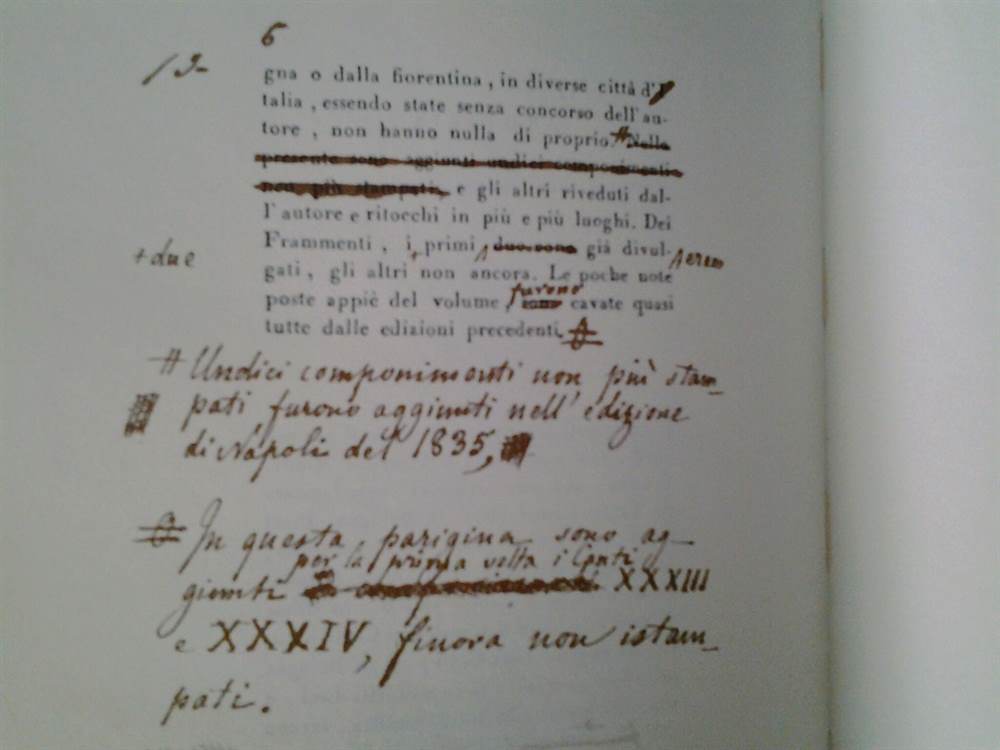 6
/ I-
gna o dalla fiorentina, in diverse città d'I
talia, essendo state senza concorso dell'au-
tore, non hanno nulla di proprio. # Nella
presente sono aggiunti undici componimenti
non più stampati, e gli altri riveduti dal-
l'autore e ritocchi in più e più luoghi. Dei
Frammenti, i primi due sono già divul-
+ due
erano
gati, gli altri non ancora. Le poche note
furono
poste appiè del volume, sono cavate quasi
tutte dalle edizioni precedenti.
# Undici componimenti non più stam-
pati furono aggiunti nell'edizione
di Napoli del 1835,
In questa parigina sono ag-
per la prima volta i Canti
giunti XXXIII
e XXXIV, finora non istam-
pati.